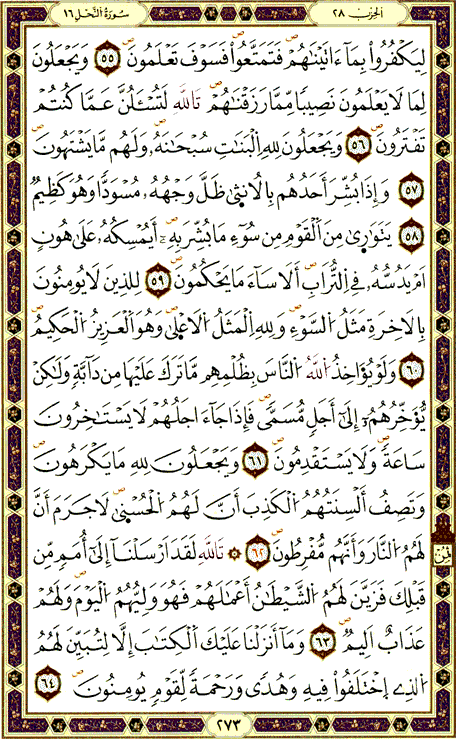 الحِزْب ٢٨
سُورَةُ النَّحْل ١٦
لِيَكْفُرُوا۟ بِمَآ ءَاتَيْنَٰهُمْۖ فَتَمَتَّعُوا۟ۖ فَسَوْفَ تَعْلَمُونَۖ ٥٥ وَيَجْعَلُونَ
لِمَا لَا يَعْلَمُونَ نَصِيبًا مِّمَّا رَزَقْنَٰهُمْۖ تَاللَّهِ لَتُسْـَٔلُنَّ عَمَّا كُنتُمْ
تَفْتَرُونَۖ ٥٦ وَيَجْعَلُونَ لِلهِ اِ۬لْبَنَٰتِ سُبْحَٰنَهُۥ وَلَهُم مَّا يَشْتَهُونَۖ
٥٧ وَإِذَا بُشِّرَ أَحَدُهُم بِالُانث۪ىٰ ظَلَّ وَجْهُهُۥ مُسْوَدّاً وَهُوَ كَظِيمٌ
٥٨ يَتَوَٰر۪ىٰ مِنَ اَ۬لْقَوْمِ مِن سُوٓءِ مَا بُشِّرَ بِهِۦٓۖ أَيُمْسِكُهُۥ عَلَىٰ هُونٍ
اَمْ يَدُسُّهُۥ فِے اِ۬لتُّرَابِۖ أَلَا سَآءَ مَا يَحْكُمُونَۖ ٥٩ لِلذِينَ لَا يُومِنُونَ
بِالَاخِرَةِ مَثَلُ اُ۬لسَّوْءِۖ وَلِلهِ اِ۬لْمَثَلُ اُ۬لَاعْل۪ىٰۖ وَهُوَ اَ۬لْعَزِيزُ اُ۬لْحَكِيمُۖ
٦٠ وَلَوْ يُؤَاخِذُ اُ۬للَّهُ اُ۬لنَّاسَ بِظُلْمِهِم مَّا تَرَكَ عَلَيْهَا مِن دَآبَّةٖ وَلَٰكِنْ
يُّؤَخِّرُهُمُۥٓ إِلَىٰٓ أَجَلٖ مُّسَمّىٗۖ فَإِذَا جَآءَ اجَلُهُمْ لَا يَسْتَٰخِرُونَ
سَاعَةٗ وَلَا يَسْتَقْدِمُونَۖ ٦١ وَيَجْعَلُونَ لِلهِ مَا يَكْرَهُونَۖ
وَتَصِفُ أَلْسِنَتُهُمُ اُ۬لْكَذِبَ أَنَّ لَهُمُ اُ۬لْحُسْن۪ىٰۖ لَا جَرَمَ أَنَّ
لَهُمُ اُ۬لنَّارَ وَأَنَّهُم مُّفْرِطُونَۖ ٦٢ ۞ تَاللَّهِ لَقَدَ اَرْسَلْنَآ إِلَىٰٓ أُمَمٖ مِّن
قَبْلِكَ فَزَيَّنَ لَهُمُ اُ۬لشَّيْطَٰنُ أَعْمَٰلَهُمْ فَهُوَ وَلِيُّهُمُ اُ۬لْيَوْمَ وَلَهُمْ
عَذَابٌ اَلِيمٌۖ ٦٣ وَمَآ أَنزَلْنَا عَلَيْكَ اَ۬لْكِتَٰبَ إِلَّا لِتُبَيِّنَ لَهُمُ
اُ۬لذِے اِ۪خْتَلَفُوا۟ فِيهِ وَهُدىٗ وَرَحْمَةٗ لِّقَوْمٖ يُومِنُونَۖ ٦٤
ثُمُن
٢٧٣